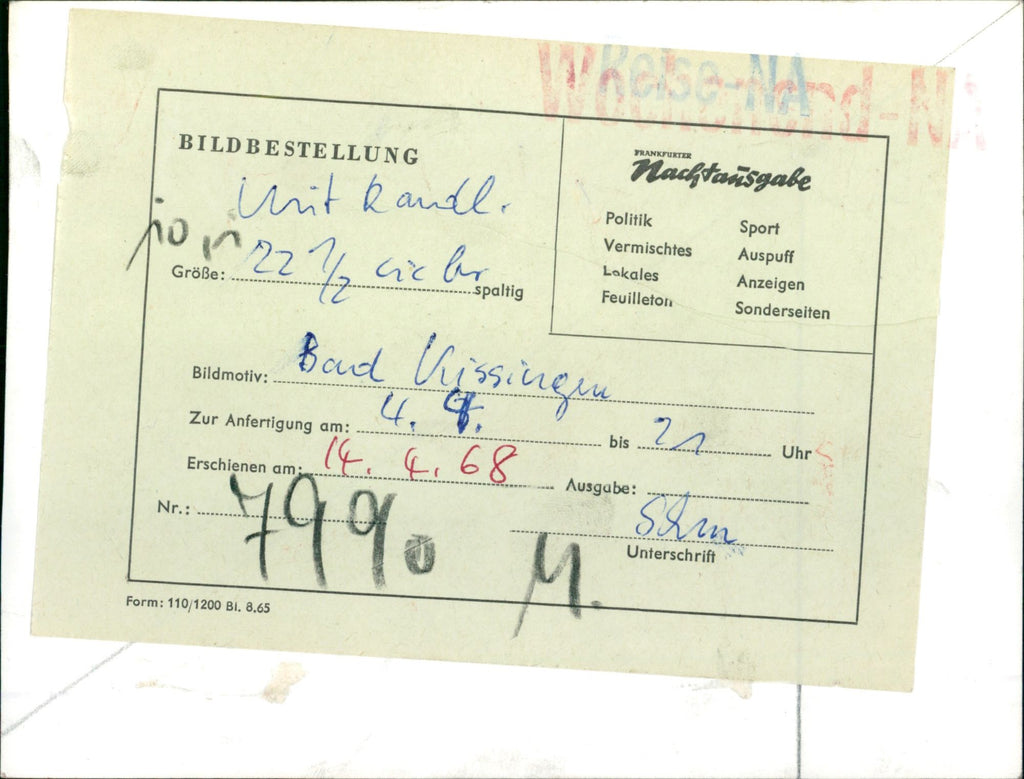 Reise-NA
Wochenend-NA
BILDBESTELLUNG
FRANKFURTER
Nachtausgabe
Politik Sport
Vermischtes Auspuff
Lokales Anzeigen
Feuilleton Sonderseiten
Größe: 22 1/2 spaltig
Bildmotiv: Bad Kissingen
Zur Anfertigung am: 4. 4. bis 21 Uhr
Erschienen am: 14. 4. 68 Ausgabe:
Nr.: 799
Unterschrift
M.
Form: 110/1200 Bl. 8.65